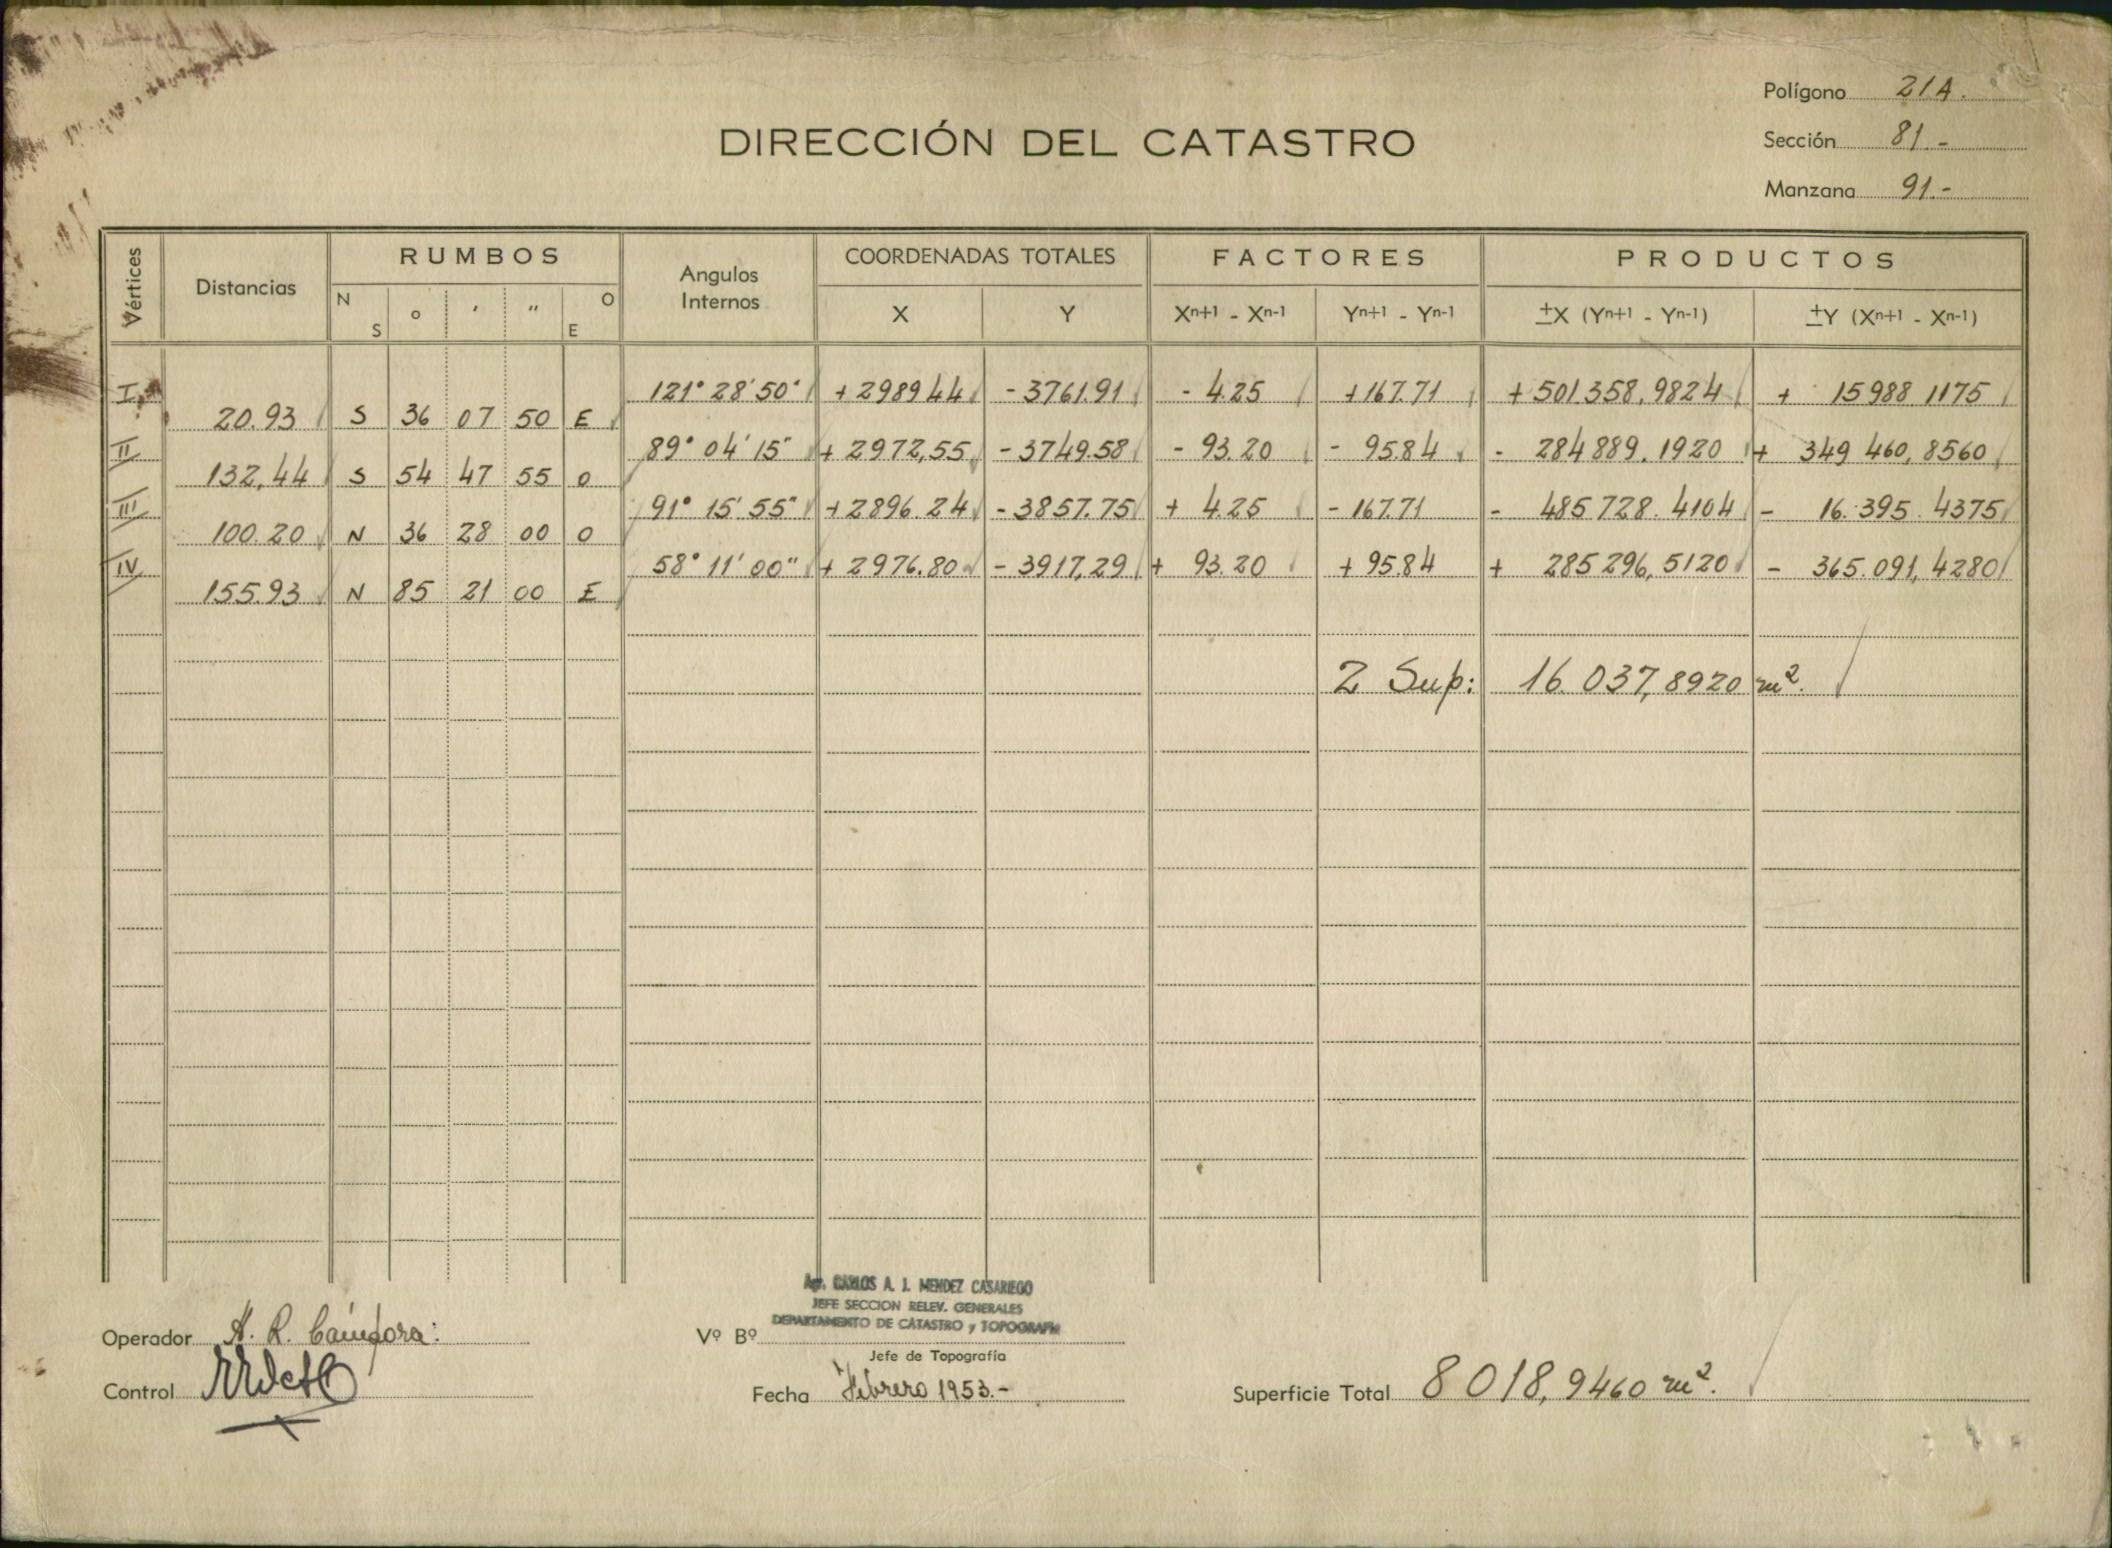 Polígono 21A.
DIRECCIÓN DEL CATASTRO
Sección 81.-
Manzana 91.-
Vértices Distancias RUMBOS Angulos Internos COORDENADAS TOTALES FACTORES PRODUCTOS
N S ° ' " O E X Y Xn+1 - Xn-1 Yn+1 - Yn-1 ±X (Yn+1 - Yn-1) ±Y (Xn+1 - Xn-1)
I 121° 28' 50" +2989.44 -3761.91 - 4.25 +167.71 +501358.9824 + 15988 1175
20.93 S 36 07 50 E
II 89° 04' 15" + 2972,55 -3749.58 - 93.20 - 95.84 - 284889.1920 + 349 460,8560
132,44 S 54 47 55 O
III 91° 15' 55" +2896.24 -3857.75 + 4.25 -167.71 - 485728.4104 - 16.395.4375
100.20 N 36 28 00 O
IV 58° 11' 00" + 2976.80 - 3917,29 + 93.20 +95.84 + 285296,5120 - 365.091,4280
155.93 N 85 21 00 E
2 Sup: 16.037,8920 m².
Agr. CARLOS A. J. MENDEZ CASARIEGO
JEFE SECCION RELEV. GENERALES
DEPARTAMENTO DE CATASTRO y TOPOGRAFIA
Operador A. R. Cámpora.
Vº Bº
Jefe de Topografía
Control
Fecha Febrero 1953.-
Superficie Total 8018,9460 m².